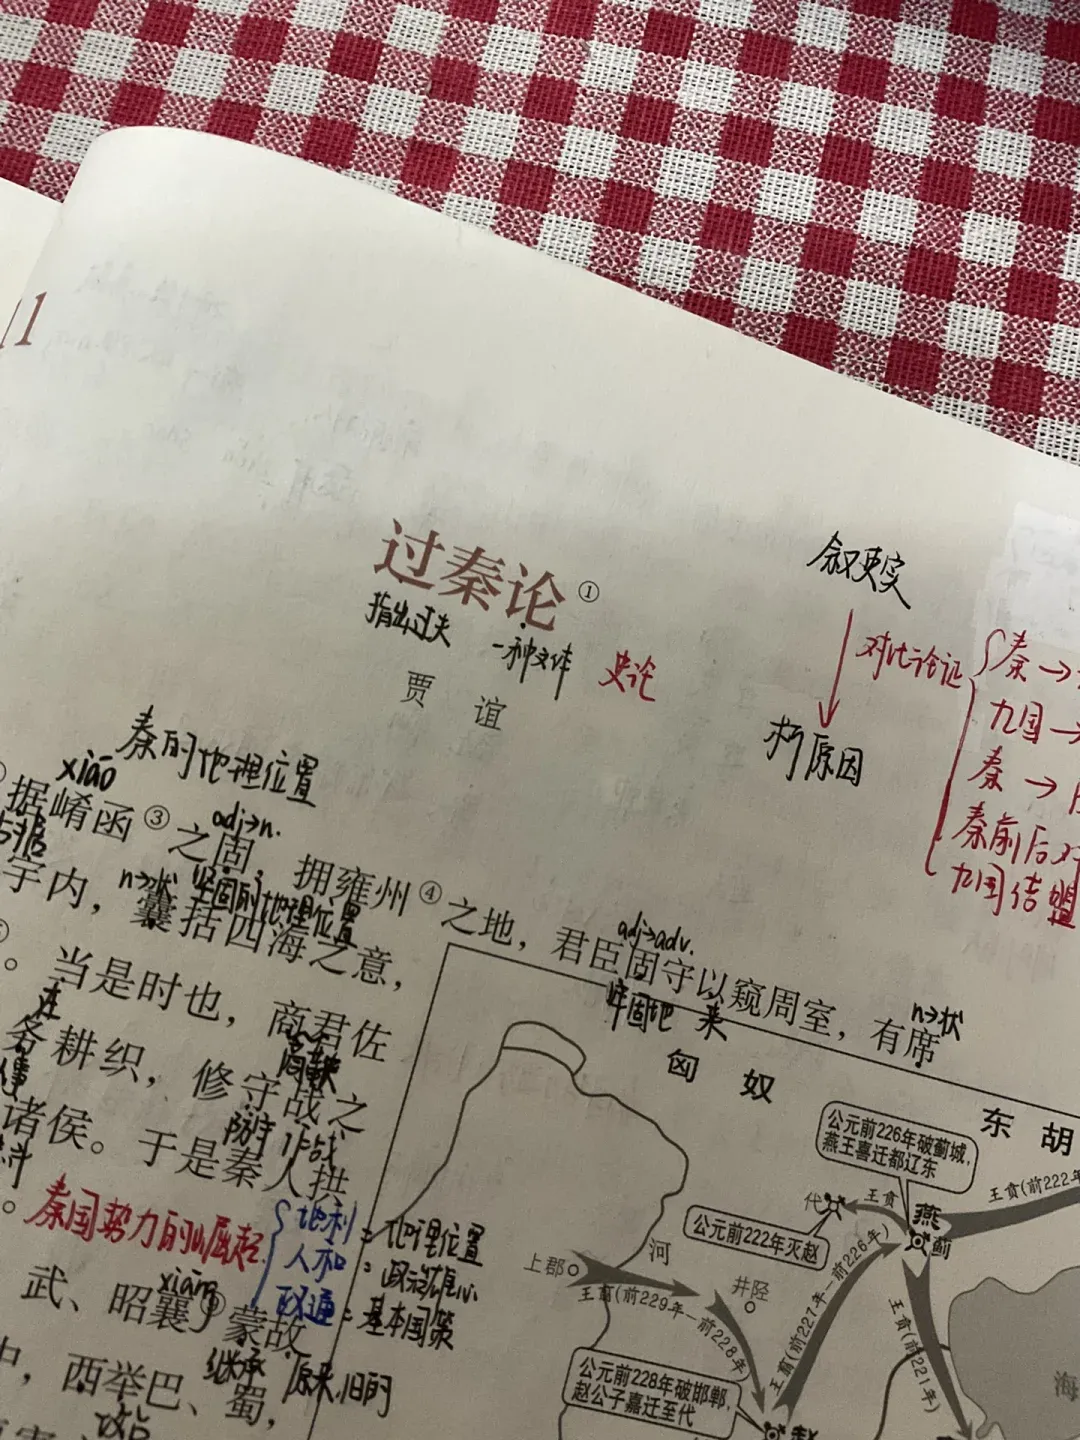 11
过秦论①
指出过失 一种文体 史论
贾 谊
叙史实
对比论证
析原因
秦→
九国→
秦→
秦前后对
九国结盟
秦的地理位置
xiáo
据崤函③之固，拥雍州④之地，君臣固守以窥周室，有席
adj→n.
坚固的地理位置
adj→adv.
牢固地 来
n→状
宇内，囊括四海之意，
n→状
。当是时也，商君佐
商鞅
务耕织，修守战之
防守 作战
诸侯。于是秦人拱
。
秦国势力的崛起
地利=地理位置
人和=政治雄心
政通=基本国策
武、昭襄
xiāng
蒙故
继承 原来,旧的
，西举巴、蜀，
匈 奴
东 胡
公元前226年破蓟城，
燕王喜迁都辽东
代
王贲
王贲(前222年
燕
蓟
公元前222年灭赵
上郡
河
井陉
王翦(前229年—前228年)
王翦(前227年—前226年)
王贲(前221年)
公元前228年破邯郸，
赵公子嘉迁至代
赵
海